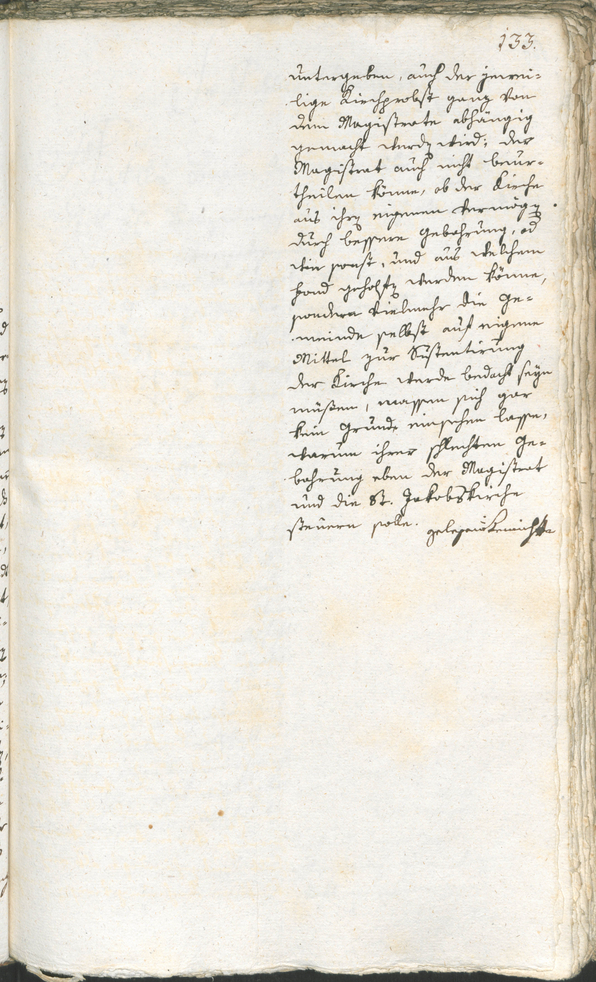 133.
untergeben, auch der jewei-
lige Kirchprobst ganz von
dem Magistrate abhängig
gemacht werdn wird; der
Magistrat auch nicht beur-
theilen könne, ob der Kirche
aus ihrn eigenen Vermögn
durch bessere Gebahrung, od
wie sonst, und aus welchem
Fond geholfn werden könne,
sondern vielmehr die Ge-
meinde selbst auf eigene
Mittel zur Sustentirung
der Kirche werde bedacht seyn
müßen, massen sich gar
kein Grund einsehen lasse,
warum ihrer schlechten Ge-
bahrung eben der Magistrat
und die St. Jakobskirche
steuern solle.